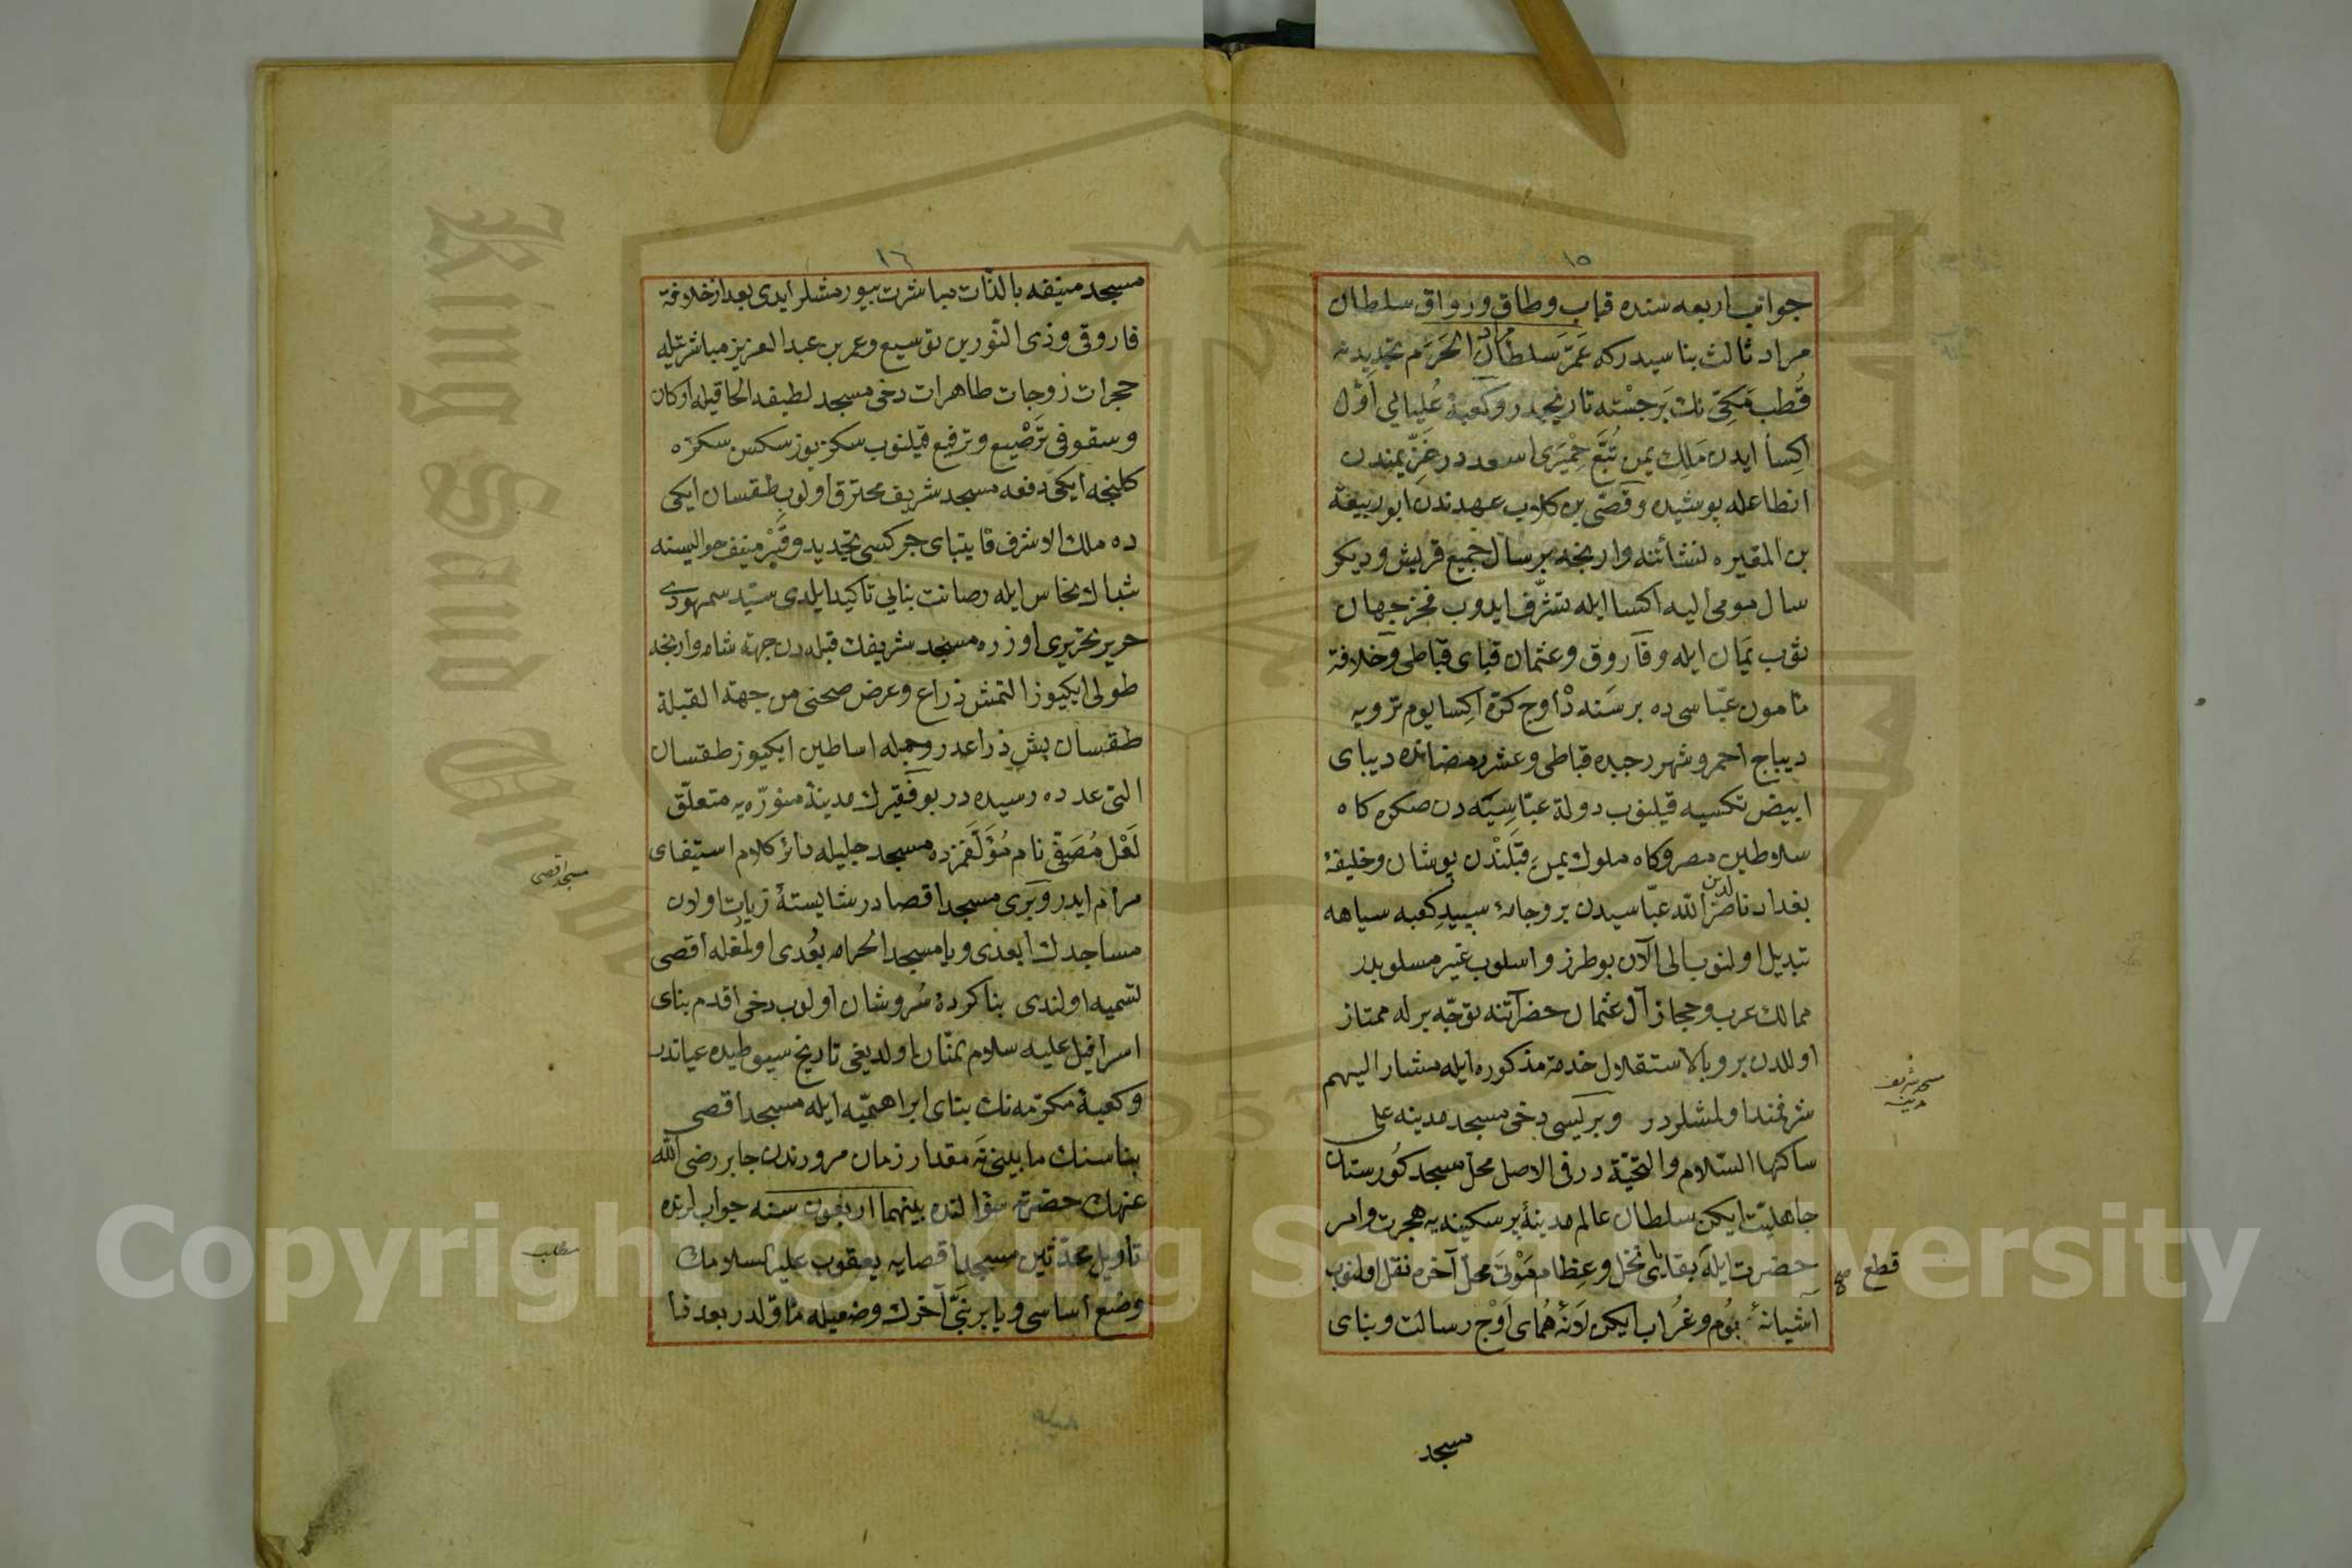 ١٥
جوانب اربعه سنده قباب وطاق ورواق سلطان
مراد ثالث بناسيدركه عَمَرَ سلطان مراد الحَرَم تجديدينه
قُطب مَكّى نك بَرجَسْته تاريخيدر وكعبهٔ عُليايى اوّل
اكِسا ايدن مَلِك يمن تُبَّع حِمْيَرى اسعد در خَزّ يمندن
انطاعله پوشيده وقصى بن كلاب عهدندن ابو ربيعة
بن المغيره نشأتنه وارنجه بر سال جميع قريش وديكر
سال مومى اليه اكسا ايله تشرّف ايدوب فخر جهان
ثوب يَمَان ايله وفاروق وعثمان قباى قباطى وخلافة
مأمون عبّاسى ده بر سَنَه دْه اوچ كرّه اكِسا يوم ترويه
ديباج احمر وشهر رجبده قباطى وعشر رمضانده ديباى
ابيض تكسيه قيلنوب دولة عبّاسِيّه دن صكره كاه
سلاطين مصر وكاه ملوك يمن قِبَلنْدن پوشان وخليفهٔ
بغداد ناصر لدين الله عبّاسيدن برو جامهٔ سپيدِ كعبه سياهه
تبديل اولنوب الى الآن بو طرز واسلوب غير مسلوبدر
ممالك عرب وحجاز آل عثمان حضراتنه توجّه برله ممتاز
اولالدن برو بالاستقلال خدمة مذكوره ايله مشار اليهم
شرفمند اولمشلردر وبريسى دخى مسجد مدينه على
ساكنها السّلام والتحيّة در فى الاصل محلّ مسجد كُورستان
جاهليّت ايكن سلطان عالم مدينهٔ پر سكينه يه هجرت وامر
حضرت ايله بقاياى نخل وعِظام مَوْتى محلّ آخره نقل اولنوب
آشيانهٔ بُوم وغُراب ايكن لَانهٔ هُماى اَوْج رسالت وبناى
مسجد شريف
مدينه
قطع صح
مسجد
١٦
مسجد منيفه بالذّات مباشرت بيورمشلر ايدى بعد از خلافة
فاروقى وذى النّورين توسيع وعمر بن عبد العزيز مباشرتيله
حجرات زوجات طاهرات دخى مسجد لطيفه الحاقيله اركان
وسقوفى تَرصْيع وترفيع قيلنوب سكز يوز سكسن سكزه
كلينجه ايكى دفعه مسجد شريف محترق اولوب طقسان ايكى
ده ملك الاشرف قايتباى چركسى تجديد وقَبْر منيف حواليسنه
شباك نحاس ايله رصانت بنايى تاكيد ايلدى سيّد سمهودى
حرير تحريرى اوزره مسجد شريفك قبله دن جهة شامه وارنجه
طولى ايكيوز التمش ذراع وعرض صحنى من جهة القبلة
طقسان بش ذراعدر وجمله اساطين ايكيوز طقسان
التى عدده رسيده در بو فَقيرك مدينهٔ منوّره يه متعلّق
لَعْل مُصَفّى نام مُؤَلّفمزده مسجد جليله دائر كلام استيفاى
مرام ايدر وبَرى مسجد اقصا در شايستهٔ زيارت اولان
مساجدك ابعدى ويا مسجد الحرامه بُعدى اولمغله اقصى
تسميه اولندى بنا كردهٔ سُروشان اولوب دخى اقدم بناى
اسرافيل عليه سلام نمنّان اولديغى تاريخ سيوطيده عياندر
وكعبهٔ مكرّمه نك بناى ابراهيميّه ايله مسجد اقصى
بناسنك مابينى نَه مقدار زمان مرورندن جابر رضى الله
عنهك حضرته سؤالنده بينهما اربعون سنه جواب لرنده
تأويل محدّثين مسجد اقصايه يعقوب عليه السلامك
وضع اساسى ويا بر نَبّى آخرك وضعيله مأوّلدر بعد فنا
مسجد اقصى
مطلب
Copyright © King Saud University
King Saud University
1957